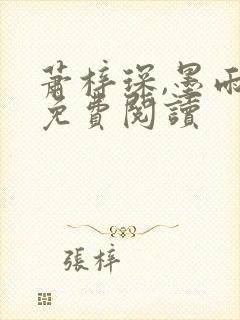 蕭梓琛,墨雨
免費閱讀
張梓